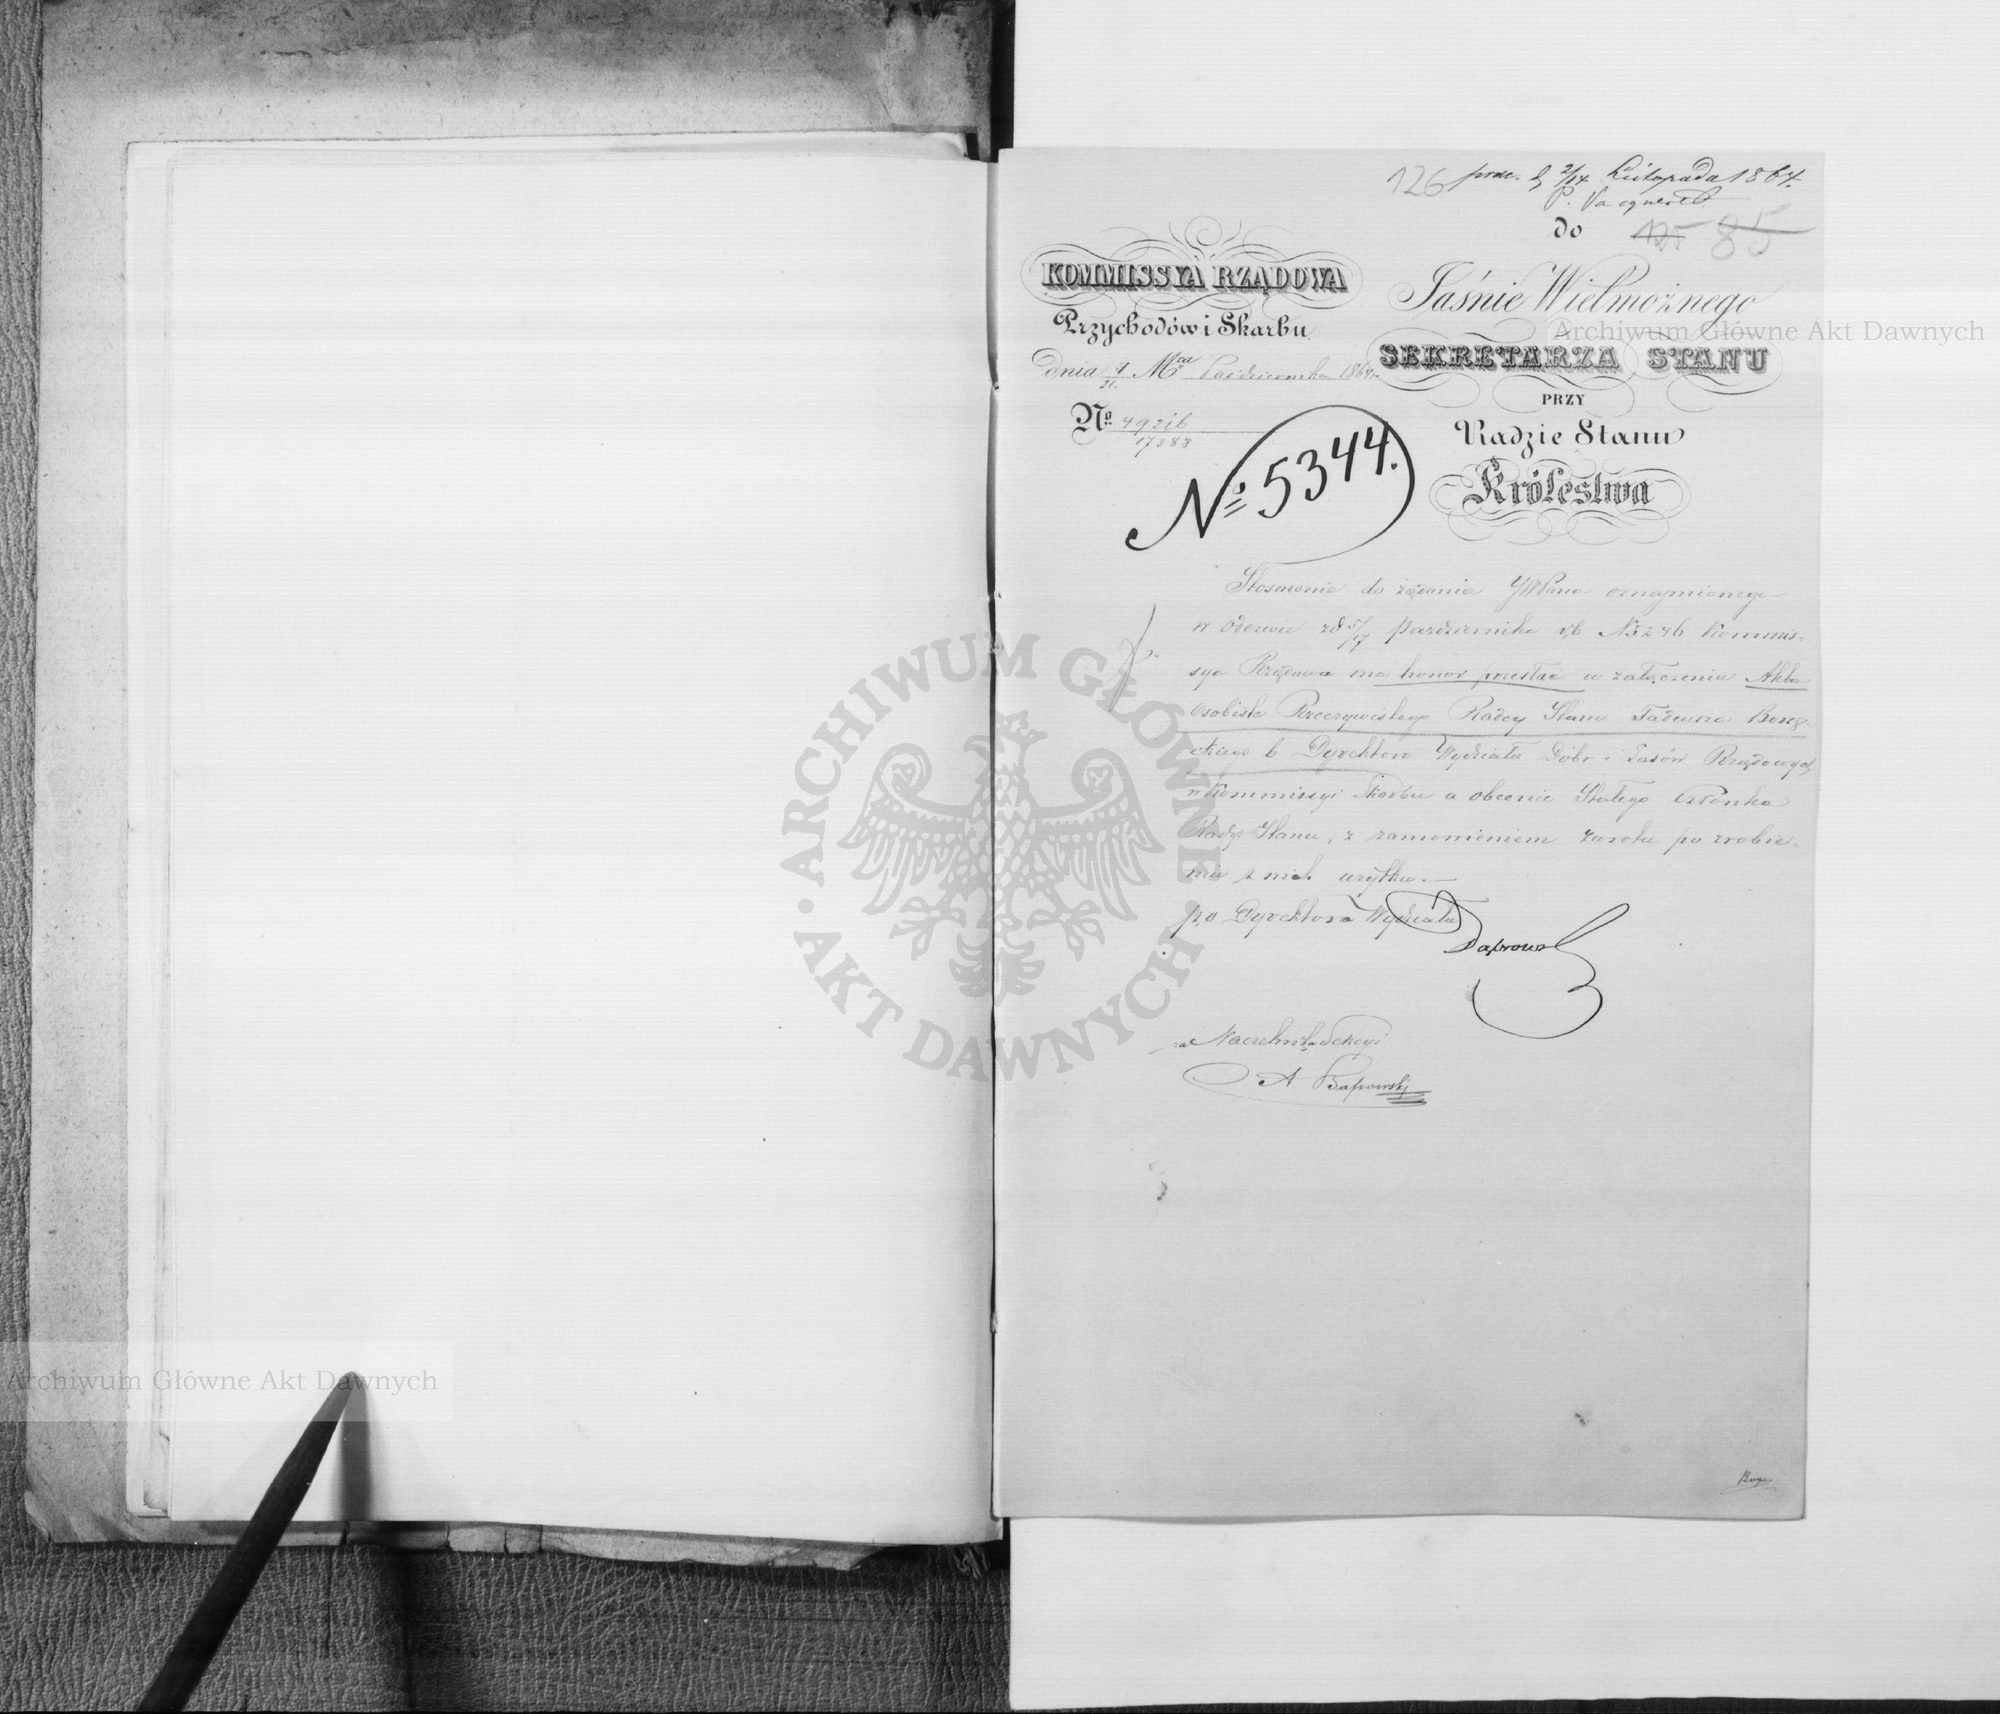 126 prze. d. 2/14 Listopada 1864.
P. Vacqueret
do 125 85
KOMMISSYA RZĄDOWA
Przychodów i Skarbu
dnia 9/21 Mca Października 1864 r.
No. 49216/17388
Jaśnie Wielmożnego
SEKRETARZA STANU
PRZY
Radzie Stanu
Królestwa
No 5344.
Stosownie do żądania JWPana oznajmionego
w odezwie z d 5/17 Października r b N 5246 Kommis-
sya Rządowa ma honor przesłać w załączeniu Akta
osobiste Rzeczywistego Radcy Stanu Tadeusza
b Dyrektora Wydziału Dóbr i Lasów Rządowych
w Kommissyi Skarbu a obecnie Stałego Członka
Rady Stanu, z zamówieniem zwrotu po zrobie-
niu z nich użytku.—
p.o Dyrektora Wydziału
za Naczelnika Sekcyi
A.
Archiwum Główne Akt Dawnych
ARCHIWUM GŁÓWNE
AKT DAWNYCH
Archiwum Główne Akt Dawnych